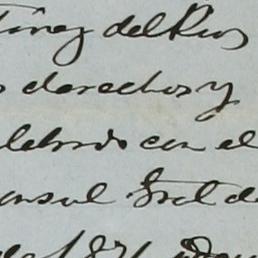 tínez del Rio
derechos y
lebrado con el
onsul Gral de
de 1871